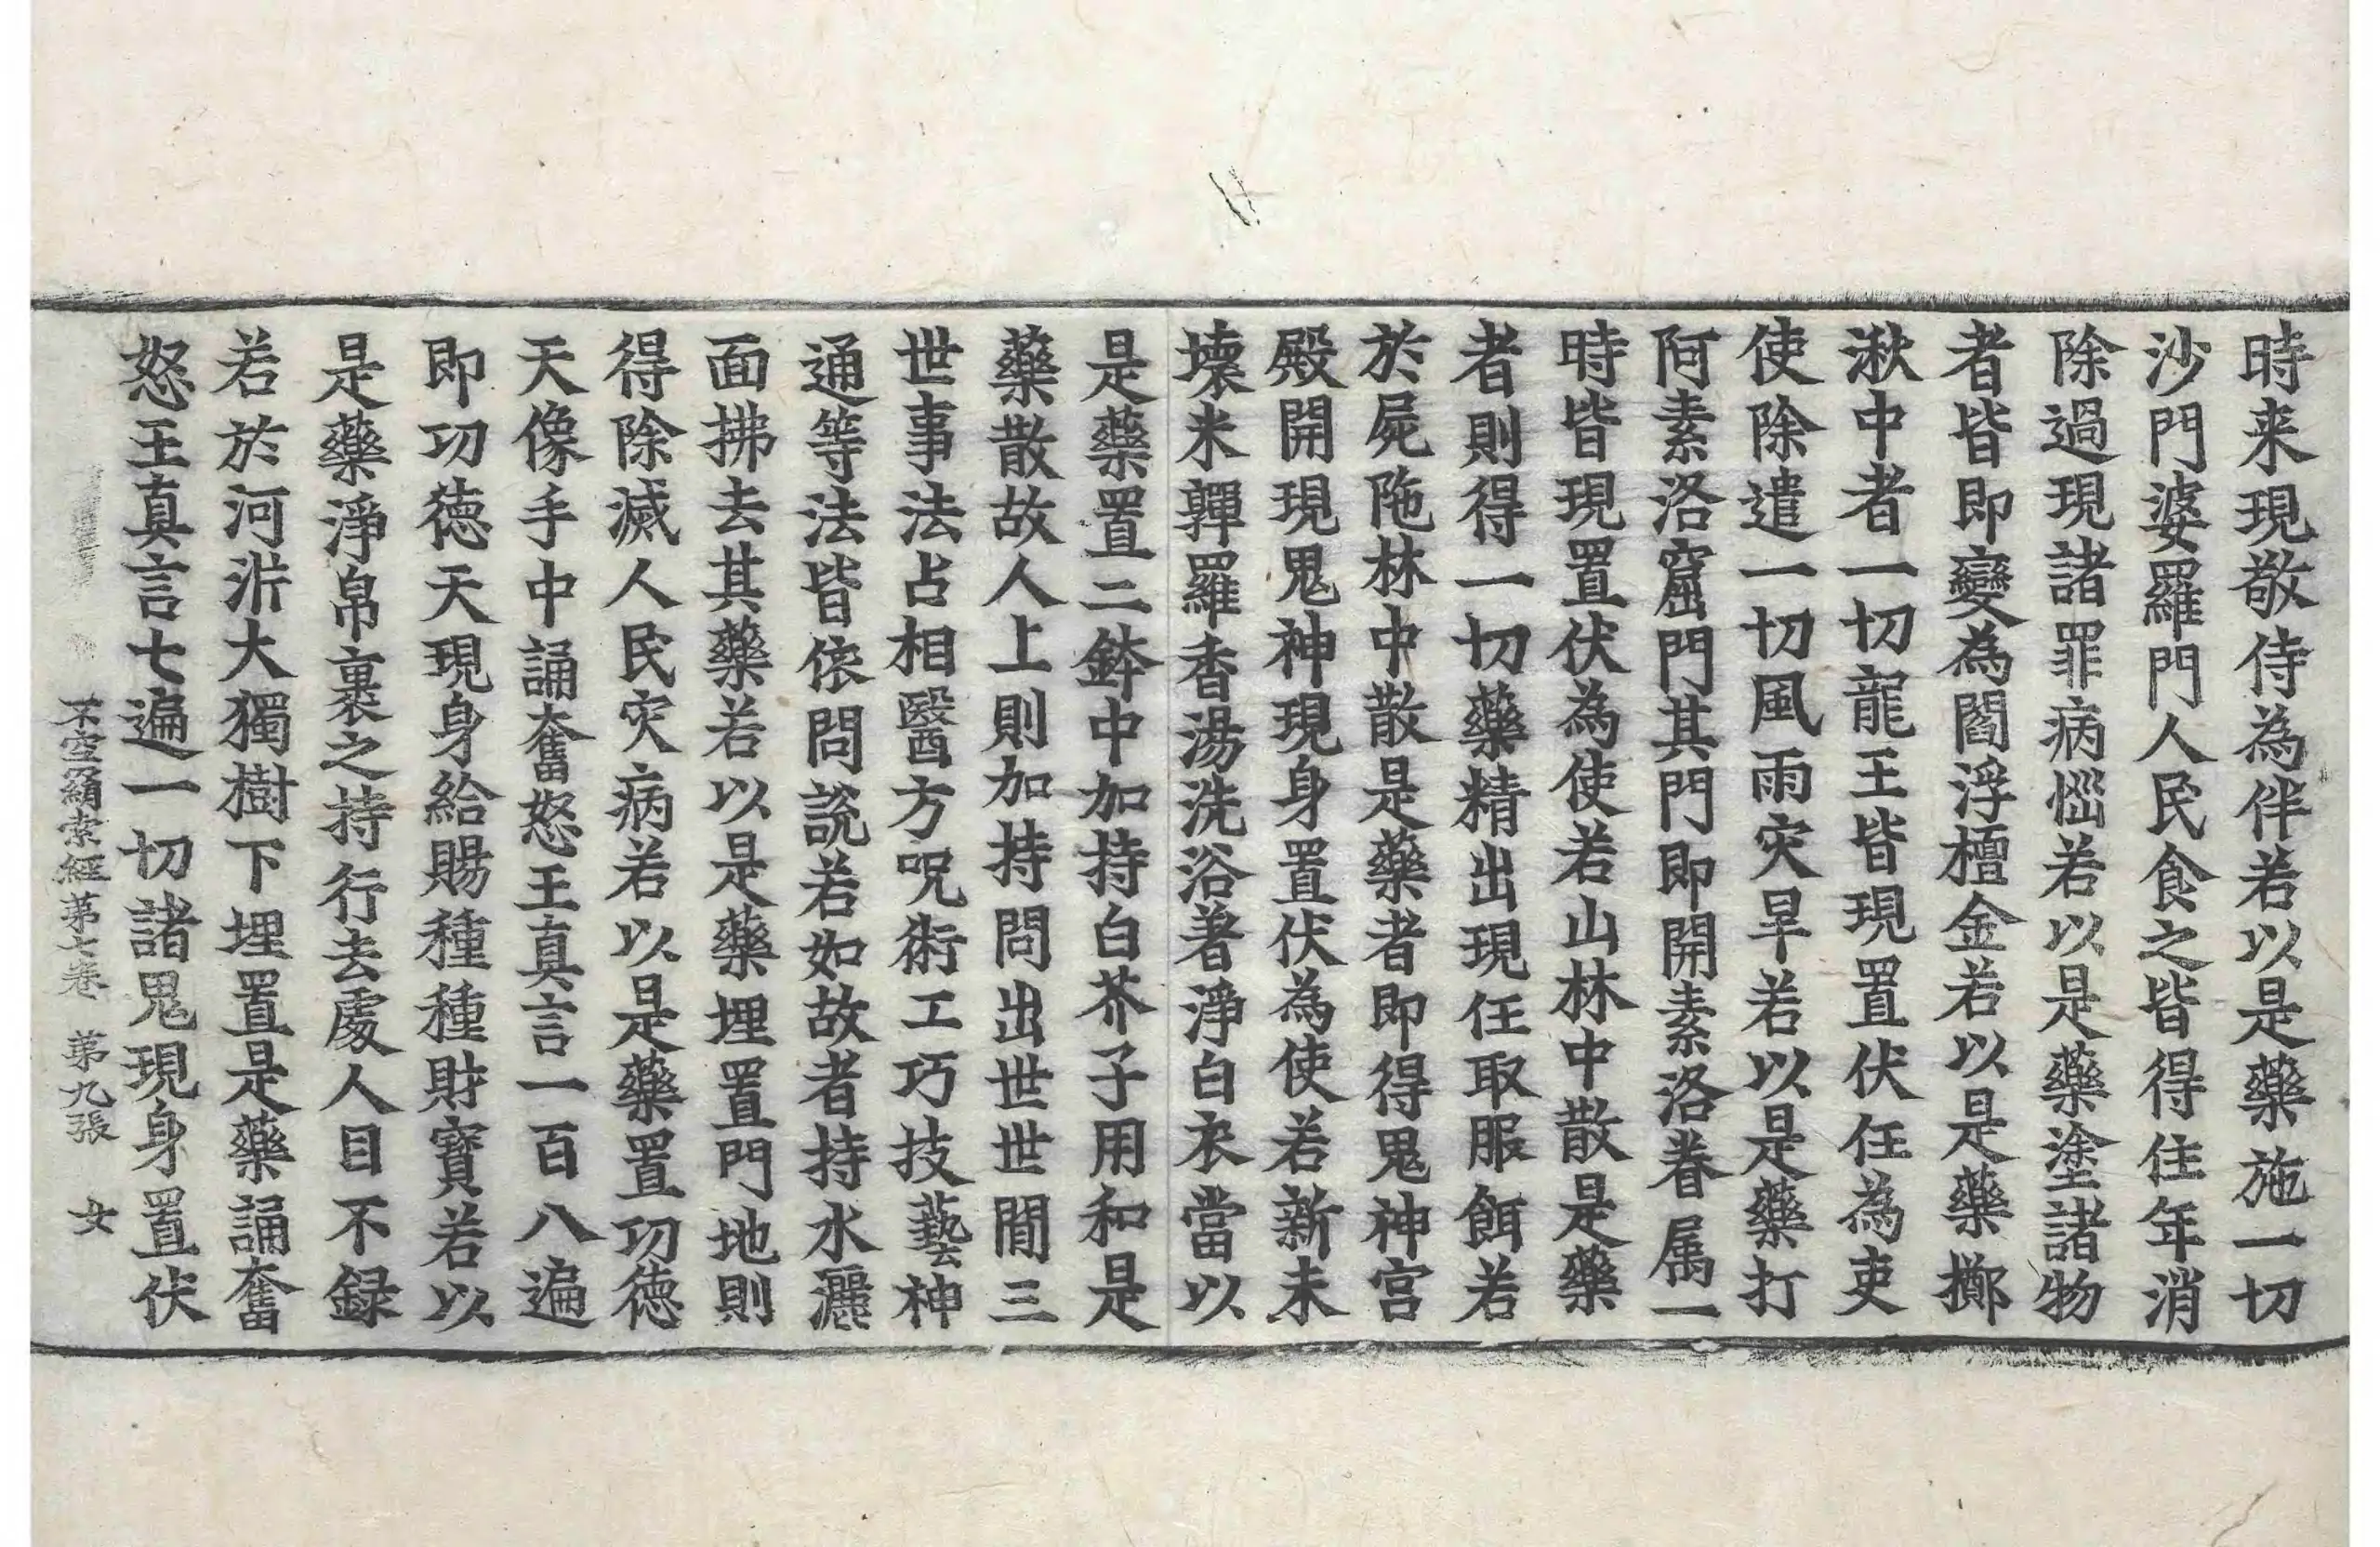 時来現敬侍為伴若以是藥施一切
沙門婆羅門人民食之皆得住年消
除過現諸罪病惱若以是藥塗諸物
者皆即變為閻浮檀金若以是藥擲
湫中者一切龍王皆現置伏任為吏
使除遣一切風雨灾旱若以是藥打
阿素洛窟門其門即開素洛眷属一
時皆現置伏為使若山林中散是藥
者則得一切藥精出現任取服餌若
於屍陁林中散是藥者即得鬼神宮
殿開現鬼神現身置伏為使若新未
壊米鞸羅香湯洗浴著淨白衣當以
是藥置二鉢中加持白芥子用和是
藥散故人上則加持問出世世間三
世事法占相醫方呪術工巧技藝神
通等法皆依問說若如故者持水灑
面拂去其藥若以是藥埋置門地則
得除滅人民灾病若以是藥置功徳
天像手中誦奮怒王真言一百八遍
即功徳天現身給賜種種財寶若以
是藥淨帛裹之持行去處人目不録
若於河泝大獨樹下埋置是藥誦奮
怒王真言七遍一切諸鬼現身置伏
不空羂索經第七卷　第九張　女